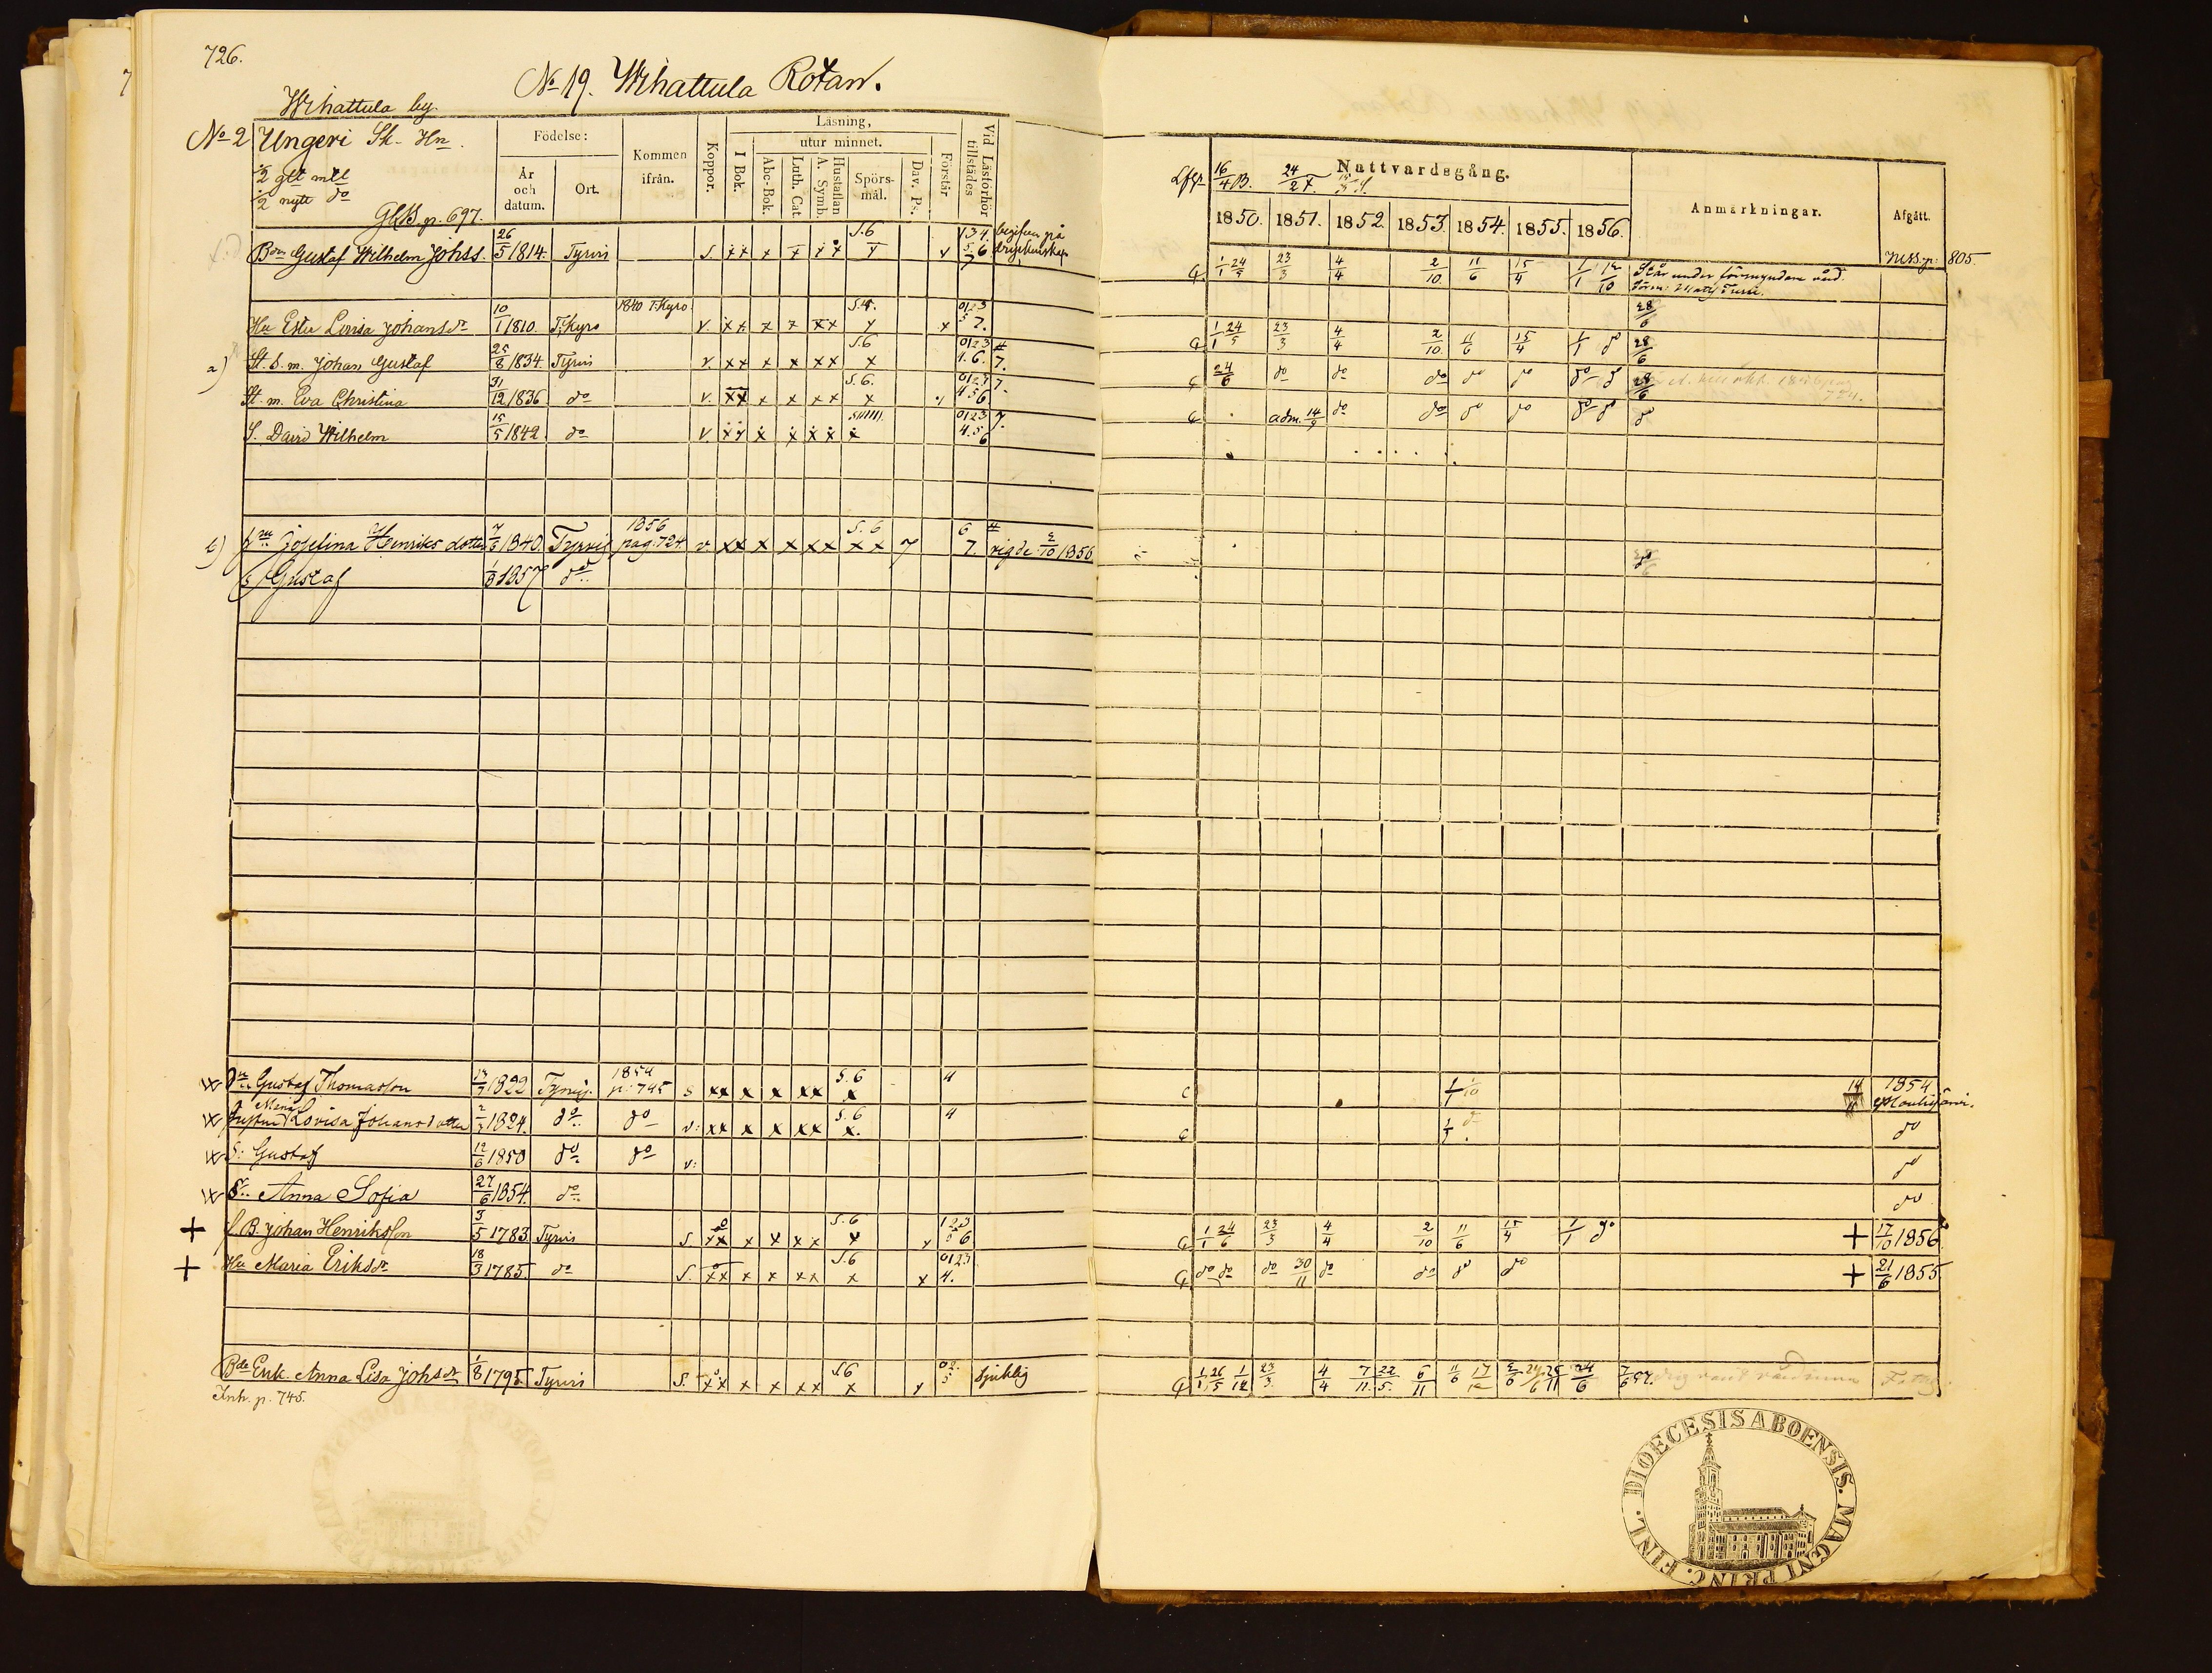 726.
No 19. Wihattula Rotan.
Wihattula by.
No 2 Ungeri Sk. Hn.
1/2 glt mtl
1/2 nytt do
GKB. p. 697.
Födelse:
År och datum.
Ort.
Kommen ifrån.
Koppor.
Läsning,
I Bok.
utur minnet.
Abc-Bok.
Luth. Cat.
A. Symb.
Hustaflan
Spörsmål.
Dav. Ps.
Förstår
Vid Läsförhör tillstädes
16/4 B. 24/2 Nattvardsgång.
1850. 1851. 1852. 1853. 1854. 1855. 1856.
Anmärkningar.
Afgått.
Bdn Gustaf Wilhelm Johss. 26/5 1814. Tyrvis S. S.6 1 3 4. 5 6 7 begifven på dryckenskap
1/1 24/5 23/3 4/4 2/10 11/6 15/4 1/1 12/10 Står under förmyndare vård. NKB. p: 805.
Hu Ester Lovisa Johansdr 10/1 1810. T.Kyro 1840 T.Kyro V. S.4. 0123 5 7.
1/1 24/5 23/3 4/4 2/10 11/6 15/4 1/1 do 28/6
a) St. S. m. Johan Gustaf 25/8 1834. Tyrvis V. S.6 0123 4. 6. 7.
24/6 do do do do do do do 28/6
St. m. Eva Christina 31/12 1836 do V. S.6. 0123 4 5 6 7.
adm. 14/9 do do do do do do do
S. David Wilhelm 15/5 1842. do V. 0123 4. 5. 6 7.
b) Josefina Henriks dotter 7/6 1840. Tyrvis 1856 pag. 724 v S. 6 7 6 7. vigde 5/10 1856
s Gustaf 1/8 1857 do
Dn Gustaf Thomasson 13/7 1822 Tyrvis. 1854 p: 745 s S. 6 4
1/1 1/10 1854 Mouhijärvi.
Hustru Maria Lovisa Johansdotter 2/3 1824. do do v: S. 6 4
do
S: Gustaf 12/6 1850 do do v:
do
Anna Sofia 27/6 1854. do
do
+ f. B. Johan Henriksson 3/5 1783 Tyrvis S. S. 6 123 5 6
1/1 24/6 23/3 4/4 2/10 11/6 15/4 1/1 do + 17/10 1856
+ Hu Maria Eriksdr 18/3 1785. do S. S.6 0123 4.
do do do 30/11 do do do do + 21/6 1855
Bde Enk. Anna Lisa Johsdr 1/8 1795. Tyrvis S. S6 02. 5 Sjuklig
1/1 26/5 1/12 23/3 4/4 7/11 22/5. 6/11 11/6 17/12 24/6 7/6 57.
Inh. p. 745.
DIOECESIS ABOENSIS. MAGNI PRINC. FINL.